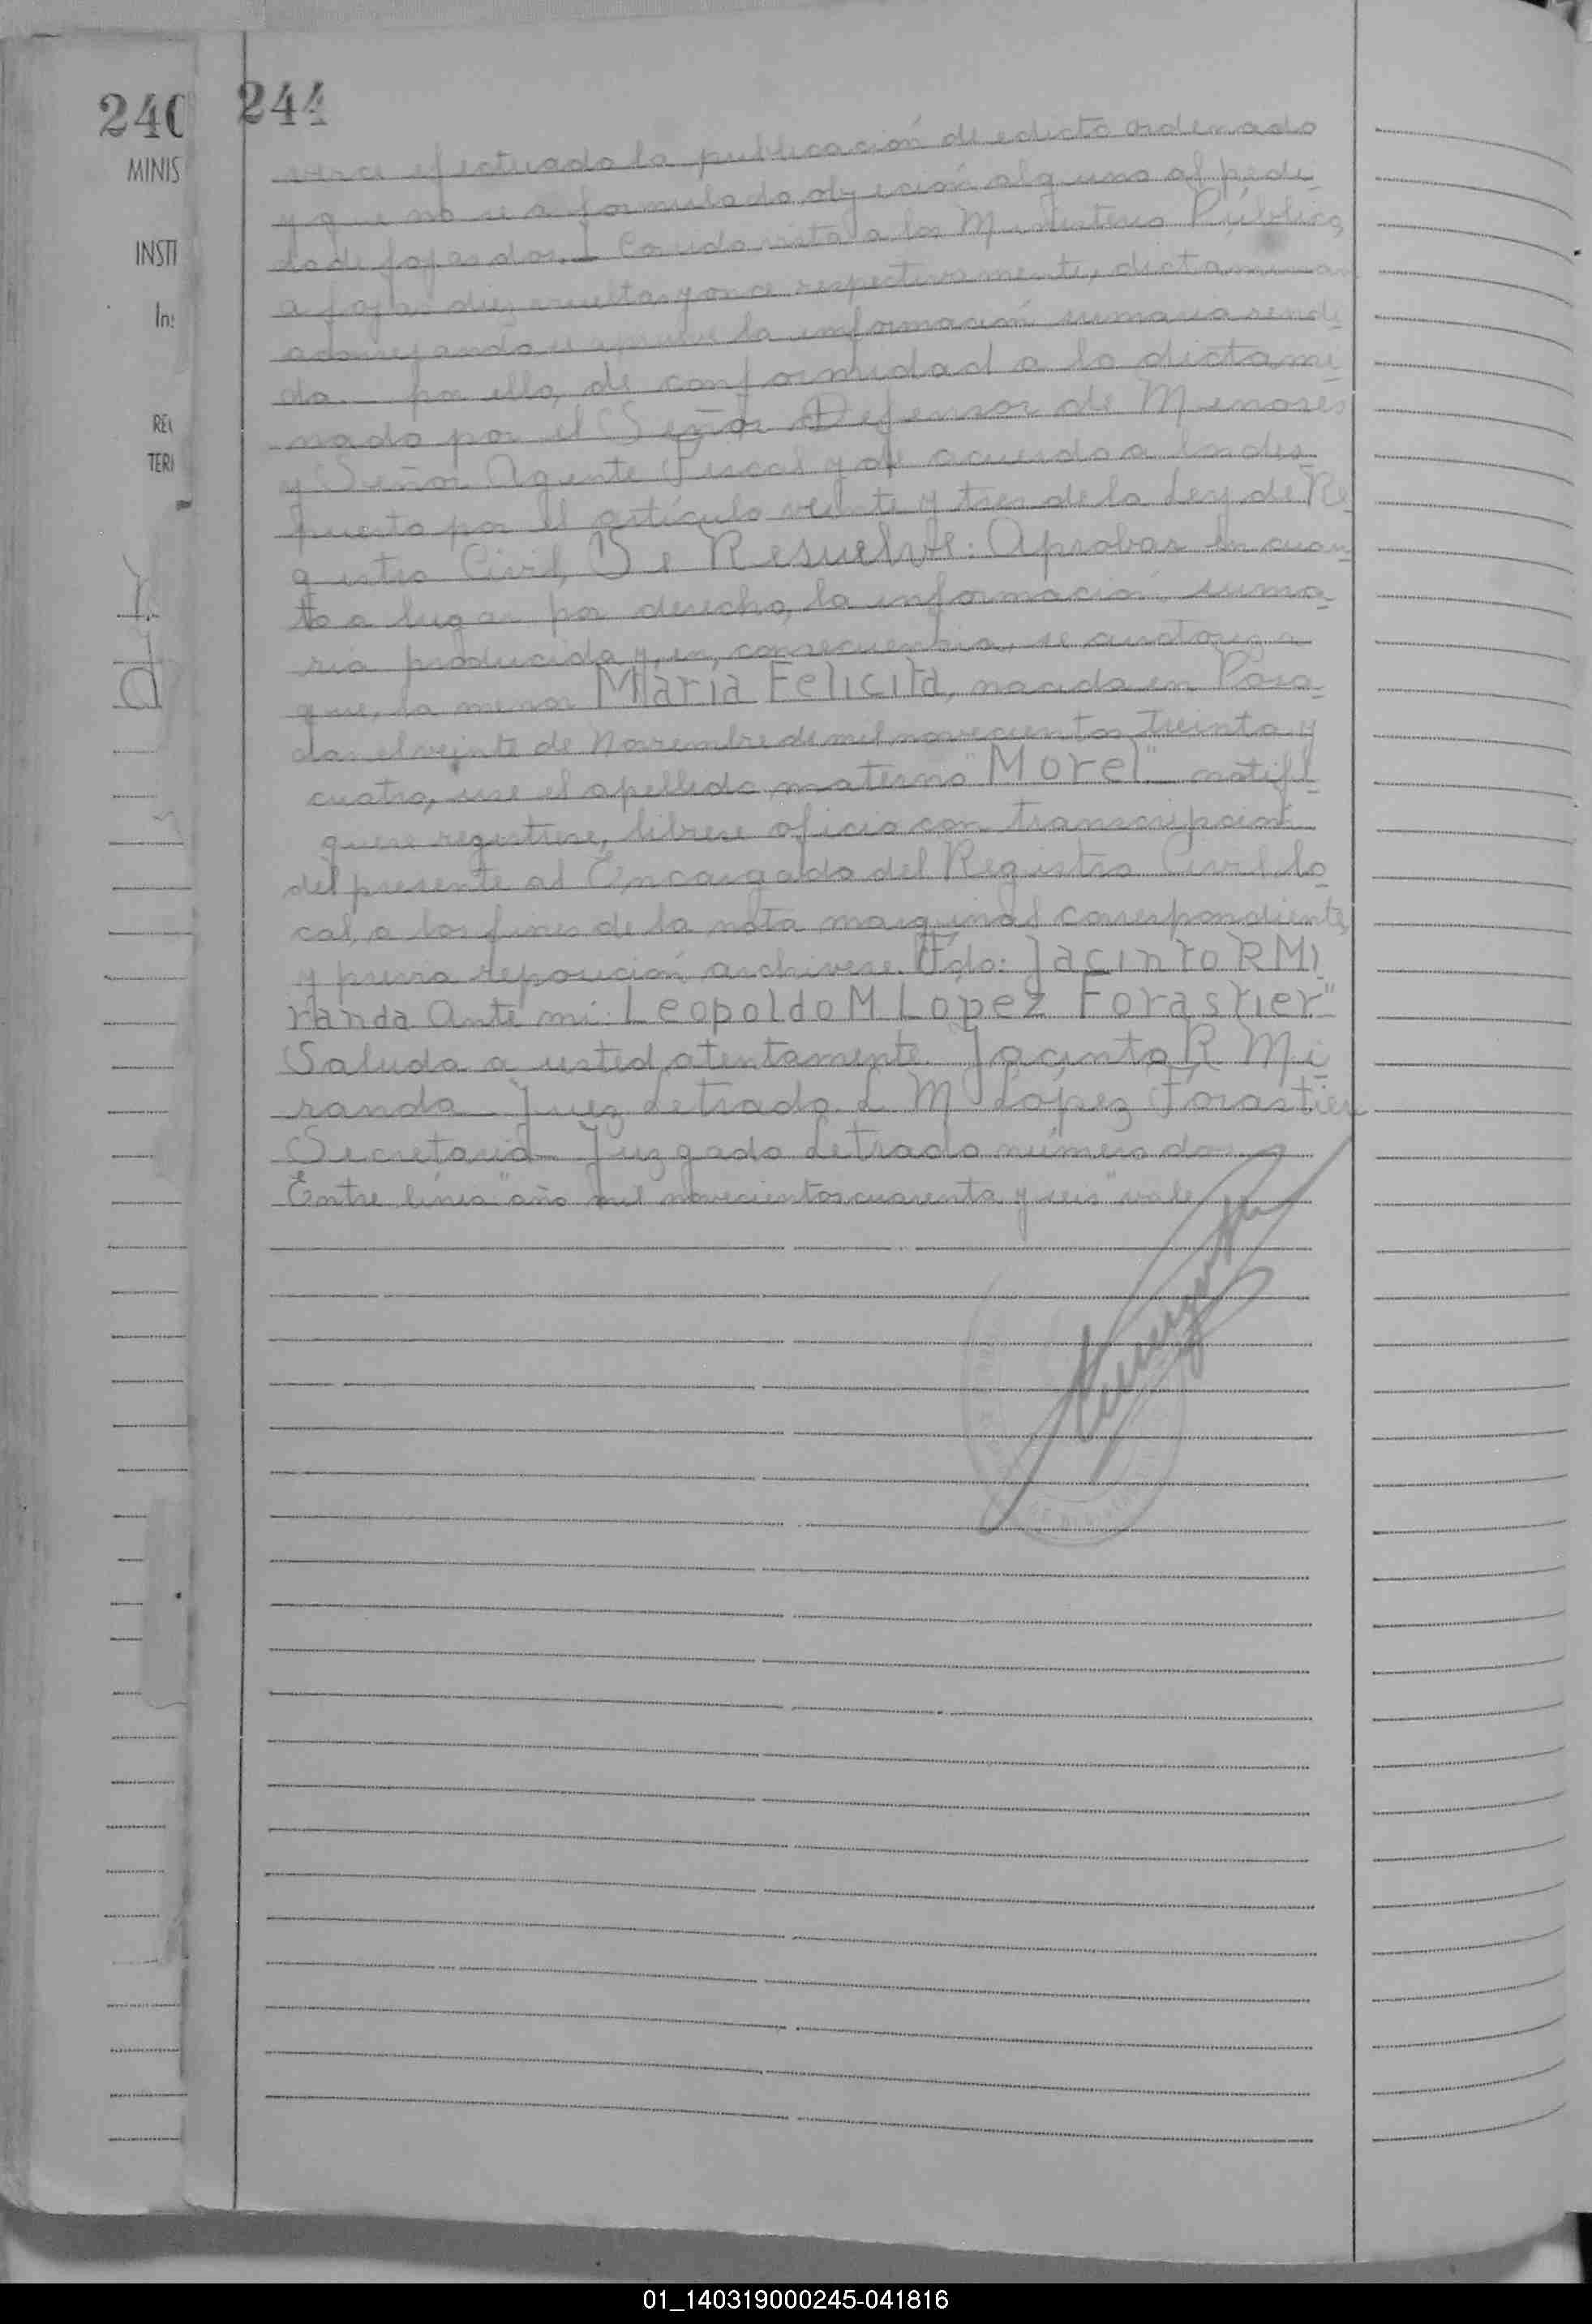 240 244
MINIS
INSTI
In:
REG
TERI
verse efectuado la publicación de edicto ordenado
y que no se a formulado objeción alguna al pedi_
do de fojas dos. I Corrida vista a los Ministerio Público,
a fojas diez vuelta y once respectivamente, dictaminan
aconsejando se apruebe la información sumaria rendi
da._ por ello, de conformidad a lo dictami_
nado por el Señor Defensor de Menores
y Señor Agente Fiscal y de acuerdo a lo dis_
puesto por el artículo veinte y tres de la Ley de Re_
gistro Civil, Se Resuelve: Aprobar en cuan_
to a lugar por derecho, la información suma_
ria producida y, en, consecuencia, se autoriza
que, la menor María Felicita, nacida en Posa_
das el veinte de Noviembre de mil novecientos treinta y
cuatro, use el apellido materno "Morel"_ notifi_
quese registrese, librese oficio con transcripción
del presente al Encargado del Registro Civil lo_
cal, a los fines de la nota marginal correspondiente,
y previa reposición archivese. Fdo: Jacinto R Mi_
randa. Ante mi: Leopoldo M López Forastier"_
Saluda a usted atentamente. Jacinto R. Mi_
randa_ Juez Letrado. L M López Forastier
Secretario_ Juzgado Letrado número dos
Entre línea "año mil novecientos cuarenta y seis" vale
01_140319000245-041816